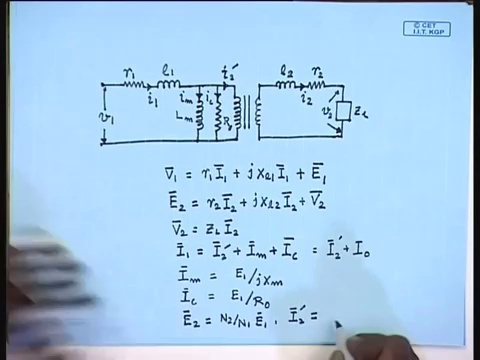 © CET
I.I.T. KGP
r₁ l₁ i₂′ l₂ r₂
i₁ iₘ i꜀ i₂
v₁ Lₘ R₀ v₂ Z_L
V̄₁ = r₁Ī₁ + jxₗ₁Ī₁ + Ē₁
Ē₂ = r₂Ī₂ + jxₗ₂Ī₂ + V̄₂
V̄₂ = Z_L Ī₂
Ī₁ = Ī₂′ + Īₘ + Ī꜀ = Ī₂′ + I₀
Īₘ = E₁/jxₘ
Ī꜀ = E₁/R₀
Ē₂ = N₂/N₁ Ē₁ , Ī₂′ =